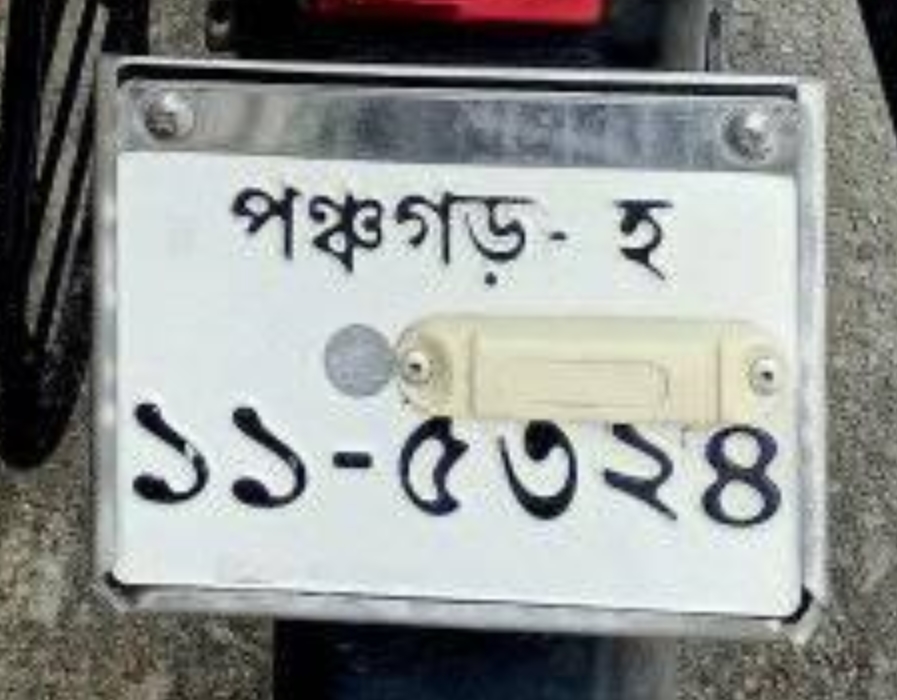 পঞ্চগড়- হ
১১-৫৩২৪